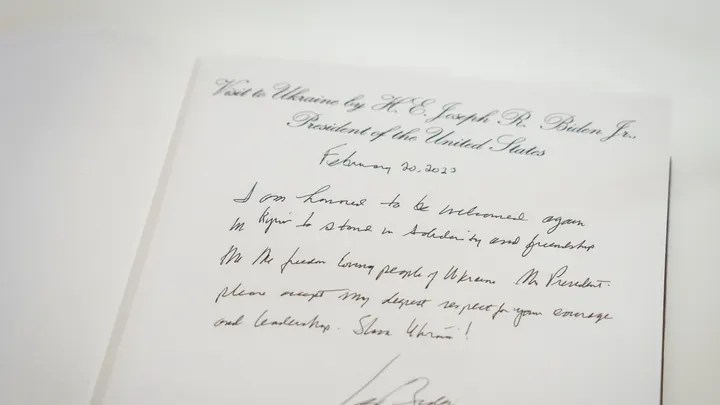 Visit to Ukraine by H. E. Joseph R. Biden Jr.,
President of the United States
February 20, 2023
I am honored to be welcomed again
in Kyiv to stand in solidarity and friendship
with the freedom loving people of Ukraine. Mr President.
please accept my deepest respect for your courage
and leadership. Slava Ukraini!
Joe Biden